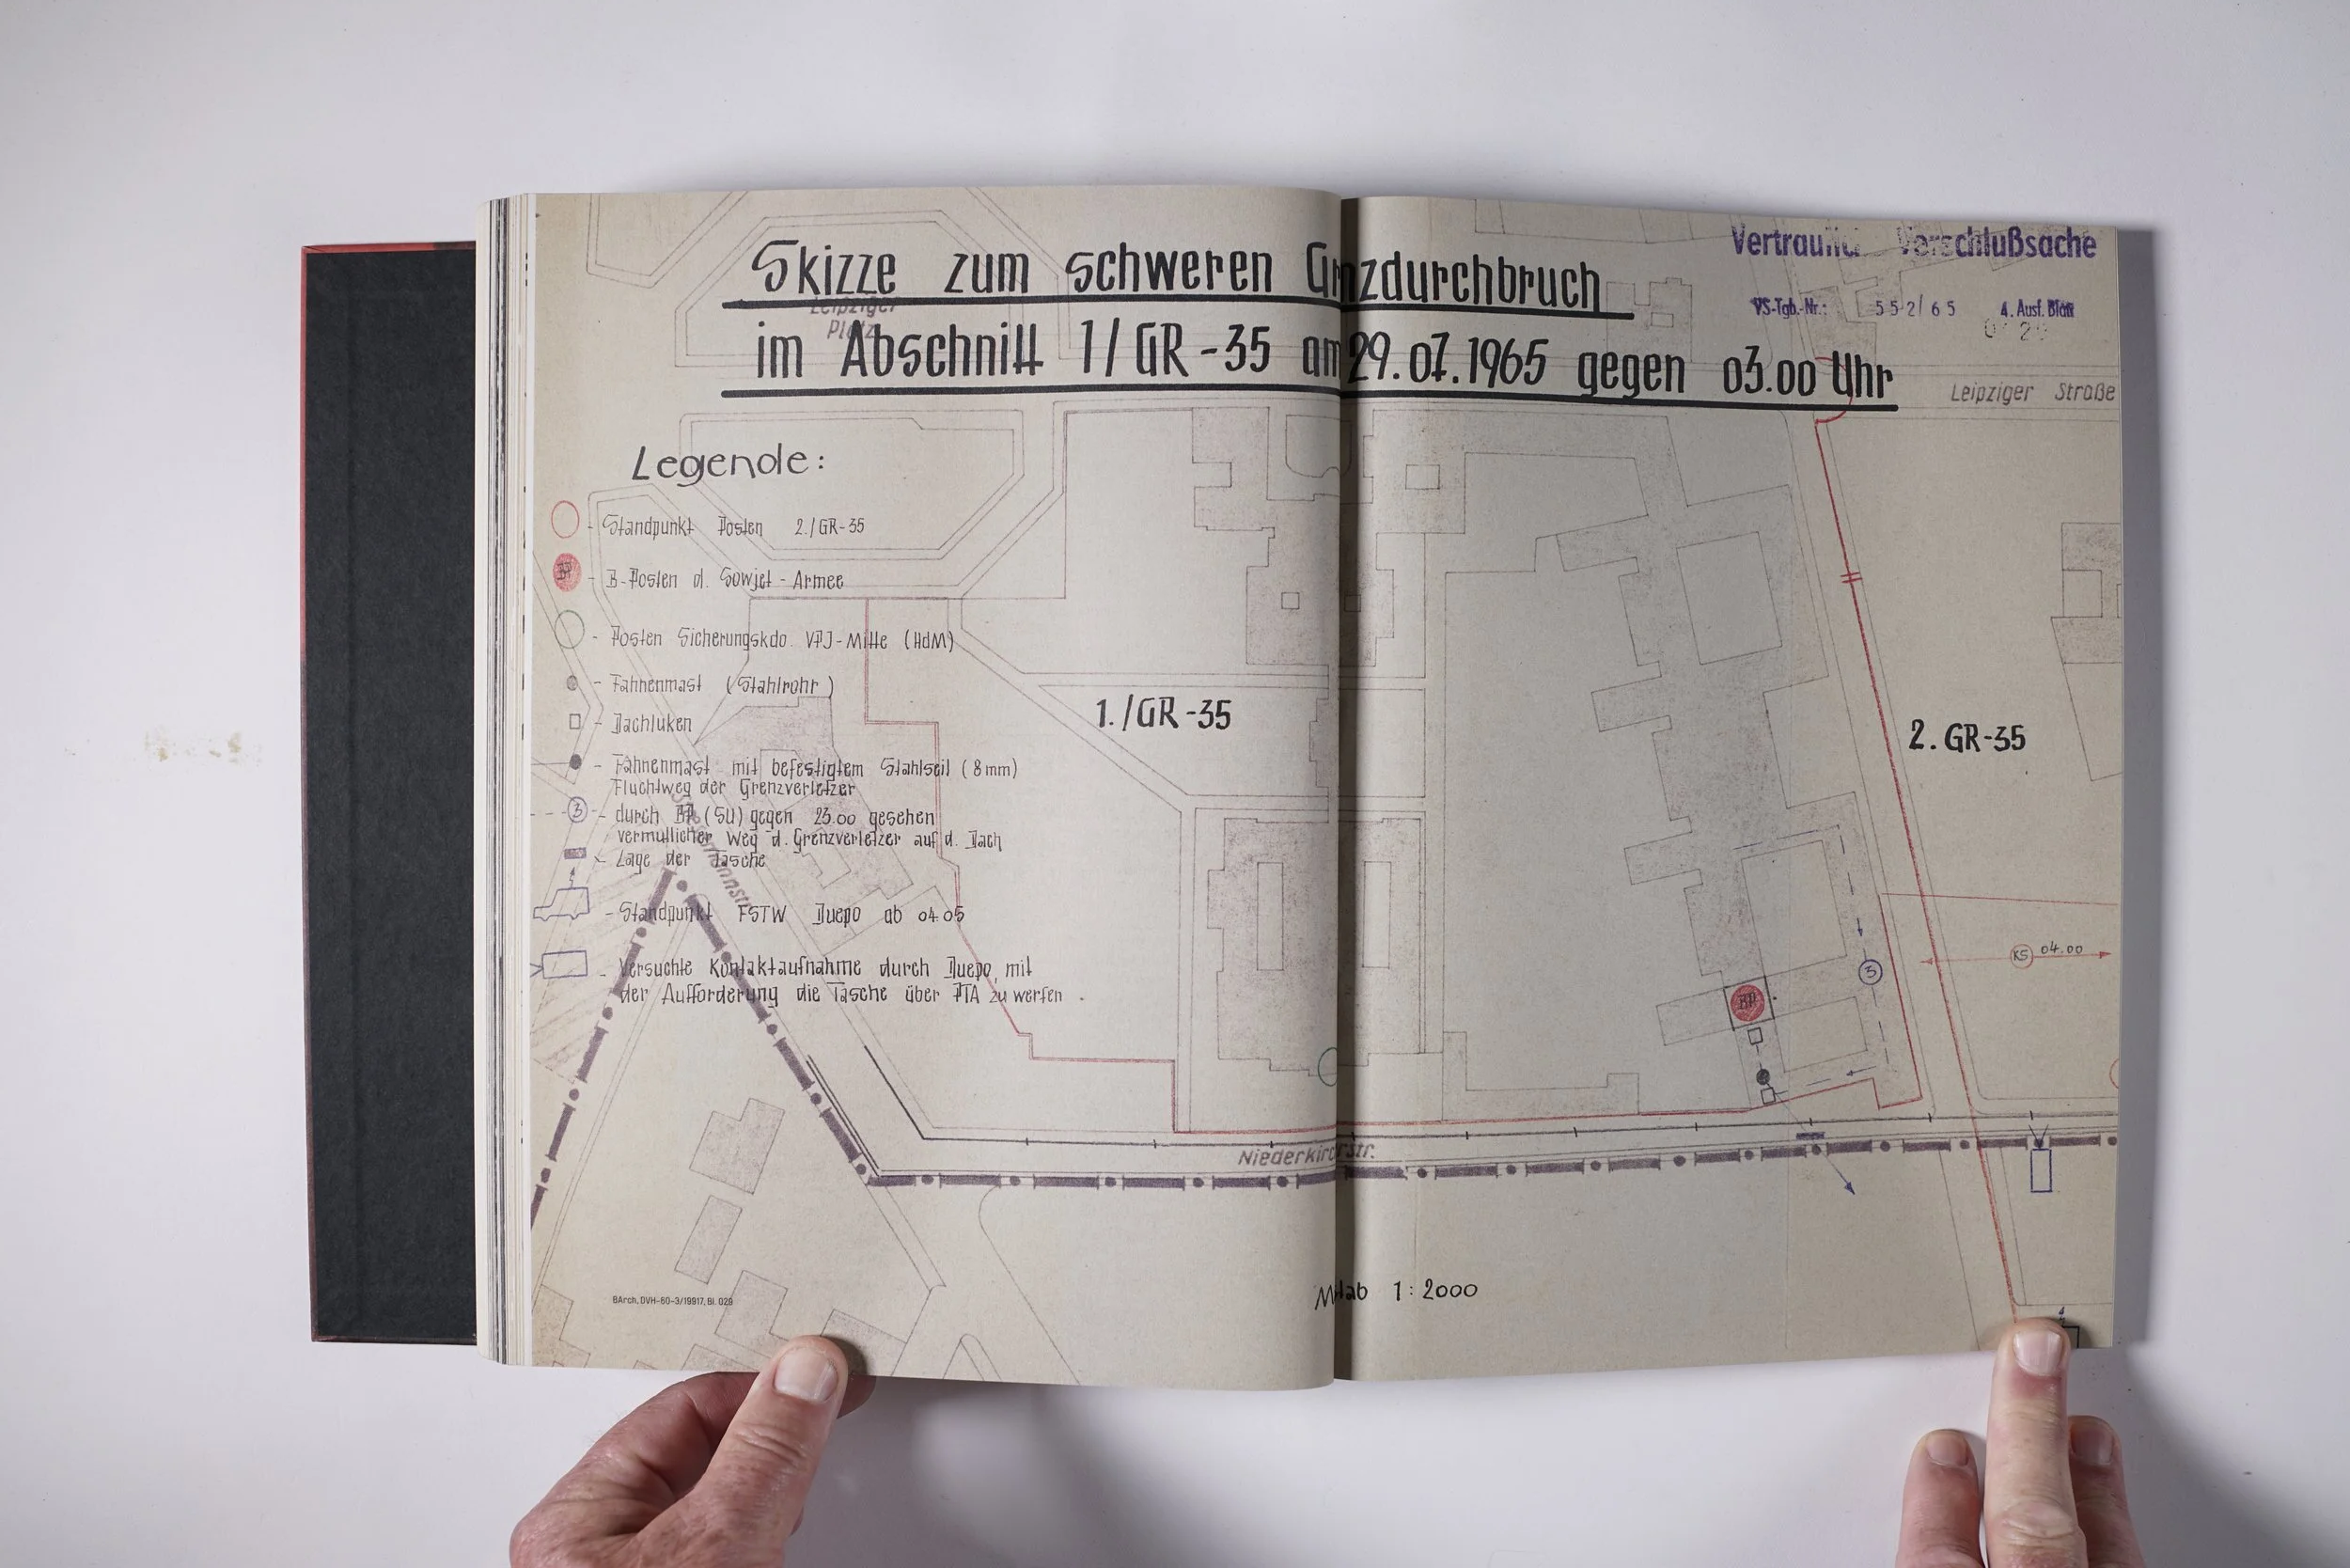 Skizze zum schweren Grnzdurchbruch
im Abschnitt 1/GR-35 am 29.07.1965 gegen 03.00 Uhr
Verschlußsache
VS-Tgb.-Nr.: 552/65 4. Ausf. Blatt
Leipziger Platz
Leipziger Straße
Legende:
- Standpunkt Posten 2./GR-35
BP - B-Posten d. Sowjet-Armee
- Posten Sicherungskdo. VPJ-Mitte (HdM)
- Fahnenmast (Stahlrohr)
- Dachluken
- Fahnenmast mit befestigtem Stahlseil (8mm)
Fluchtweg der Grenzverletzer
3 - durch BP (SU) gegen 23.00 gesehen
vermutlicher Weg d. Grenzverletzer auf d. Dach
- Lage der Tasche
- Standpunkt FSTW Duepo ab 04.05
- Versuchte Kontaktaufnahme durch Duepo, mit
der Aufforderung die Tasche über PTA zu werfen.
1./GR-35
2. GR-35
KS 04.00
3
BP
Niederkirchstr.
BArch, DVH-60-3/19917, Bl. 029
1:2000